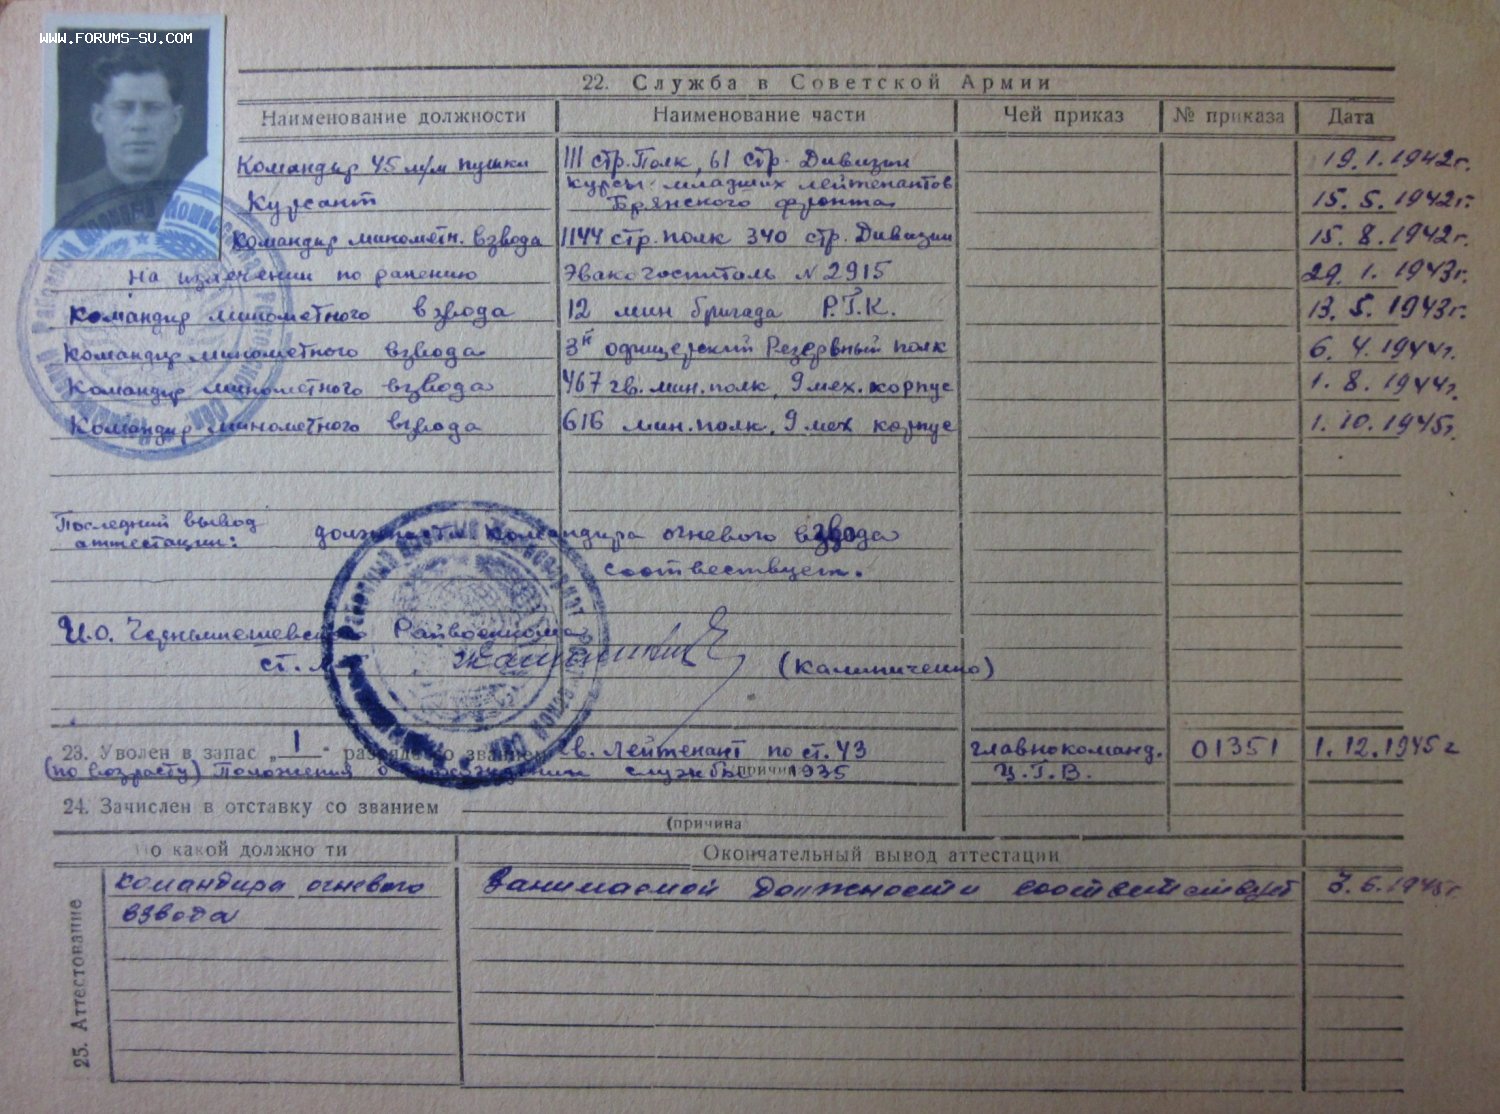 WWW.FORUMS-SU.COM
22. Служба в Советской Армии
Наименование должности Наименование части Чей приказ № приказа Дата
Командир 45 м/м пушки 111 стр. Полк, 61 стр. Дивизии 19.1.1942г.
Курсант Курсы младших лейтенантов Брянского фронта 15.5.1942г.
Командир минометн. взвода 1144 стр. полк 340 стр. Дивизии 15.8.1942г.
На излечении по ранению Эвакогоспиталь N 2915 29.1.1943г.
Командир минометного взвода 12 мин бригада Р.Г.К. 13.5.1943г.
Командир минометного взвода 3й офицерский Резервный полк 6.4.1944г.
Командир минометного взвода 467 гв. мин. полк, 9 мех. корпус 1.8.1944г.
Командир минометного взвода 616 мин. полк, 9 мех корпус 1.10.1945г.
Последний вывод
аттестации: должности командира огневого взвода
соотвествует.
И.О. Райвоенкома
ст. (Калиниченко)
23. Уволен в запас „1" разряда со званием гв. Лейтенант по ст. 43 главнокоманд. 01351 1.12.1945г
(по возрасту) Положения о службы 1935 Ц.Г.В.
24. Зачислен в отставку со званием
(причина
По какой должно ти Окончательный вывод аттестации
25. Аттестование
командира огневого Занимаемой должности соответствует 6.1945г.
взвода